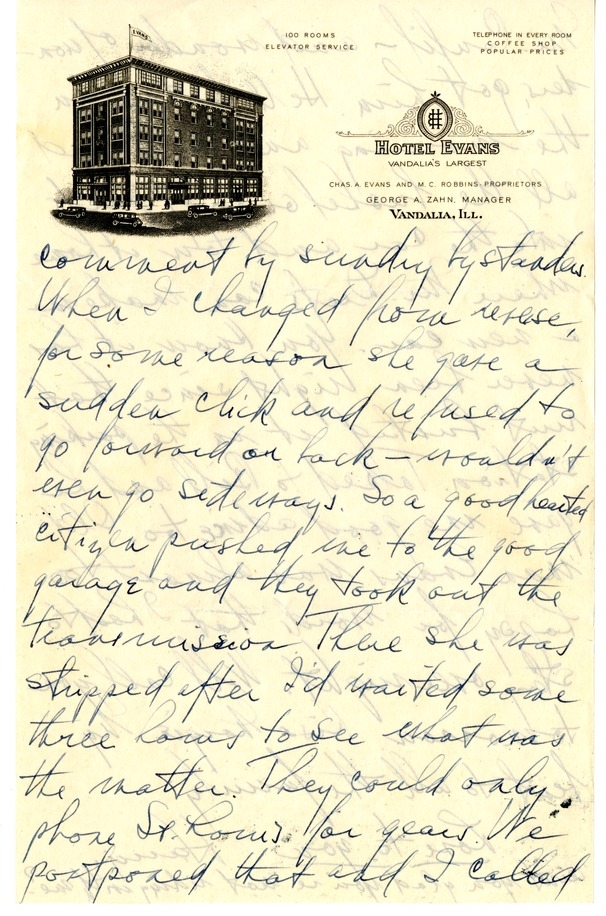 EVANS
100 ROOMS
ELEVATOR SERVICE
TELEPHONE IN EVERY ROOM
COFFEE SHOP
POPULAR PRICES
HOTEL EVANS
VANDALIA'S LARGEST
CHAS. A. EVANS AND M. C. ROBBINS-PROPRIETORS
GEORGE A. ZAHN, MANAGER
VANDALIA, ILL.
comment by sundry bystanders.
When I changed from reverse,
for some reason she gave a
sudden click and refused to
go forward or back – wouldn't
even go sideways. So a good hearted
citizen pushed me to the good
garage and they took out the
transmission. There she was
stripped after I'd waited some
three hours to see what was
the matter. They could only
phone St. Louis for gears. We
postponed that and I called